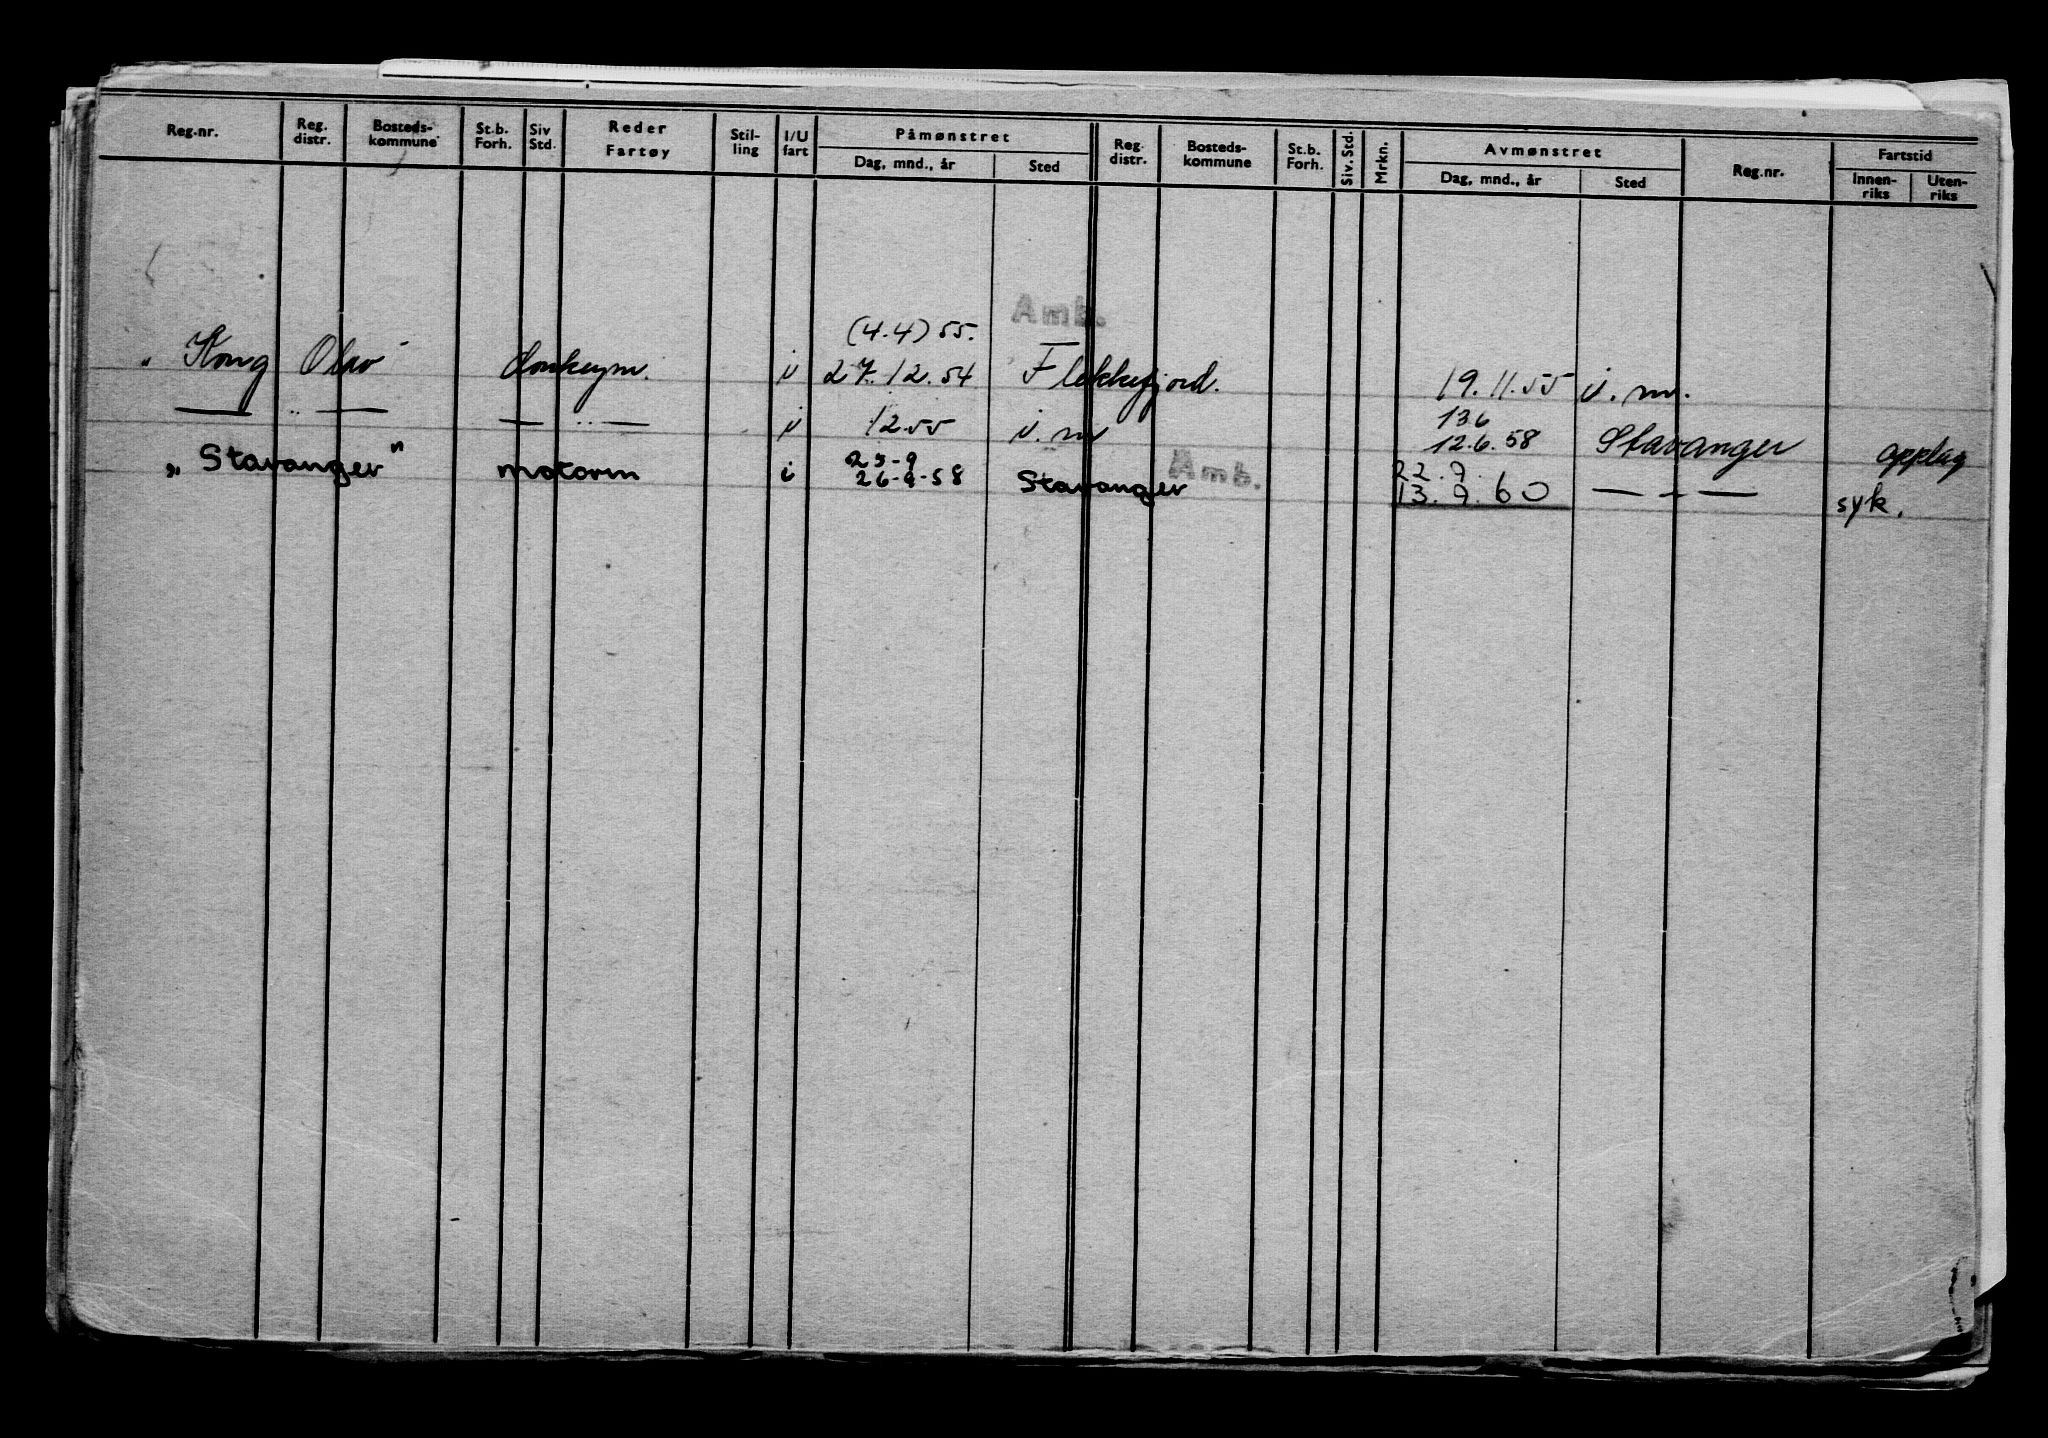 Reg.nr. Reg. distr. Bosteds-kommune St.b. Forh. Siv Std. Reder Fartøy Stil-ling I/U fart Påmønstret Dag, mnd., år Sted Reg. distr. Bosteds-kommune St.b. Forh. Siv. Std. Mrkn. Avmønstret Dag, mnd., år Sted Reg.nr. Fartstid Innen-riks Uten-riks
Amb.
(4.4) 55.
"Kong Olav" donkeym. i 27.12.54 Flekkefjord. 19.11.55 i. m.
— " — — " — i 12.55 i. m 13.6 12.6.58 Stavanger opplag
Amb.
25-9 22.9.
"Stavanger" motorm i 26-9-58 Stavanger 13.9.60 — " — syk.